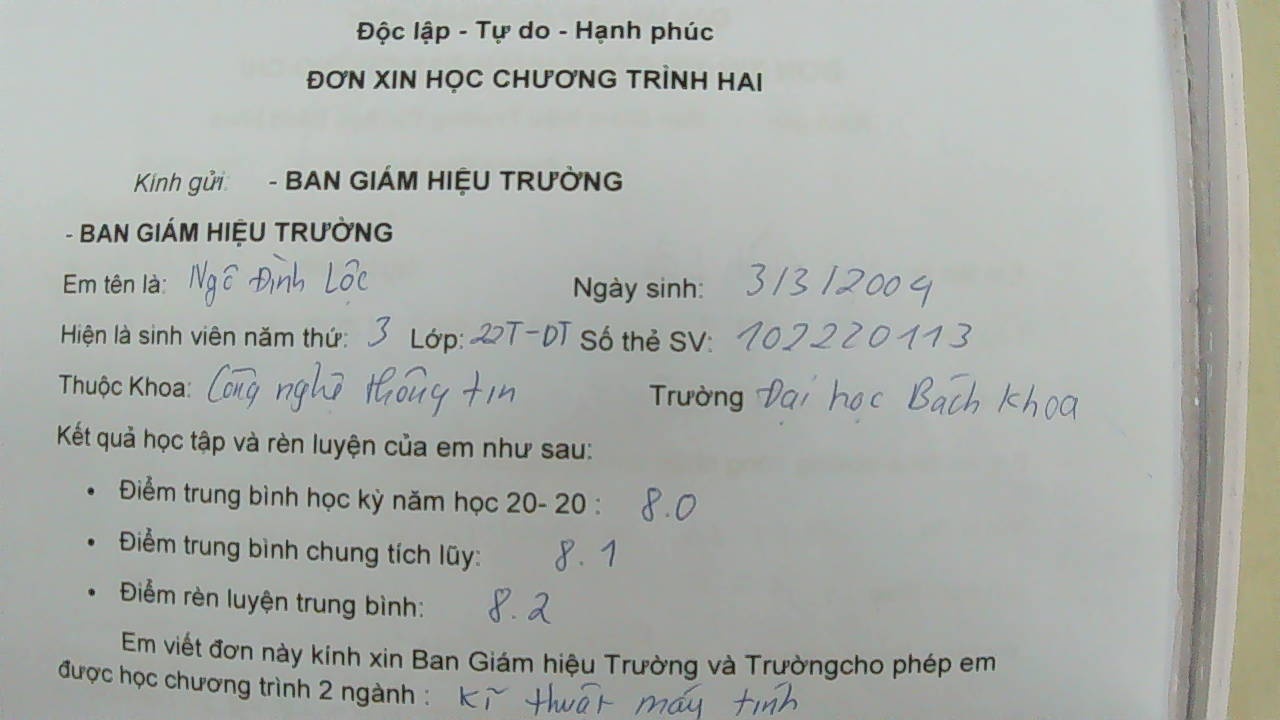 Độc lập - Tự do - Hạnh phúc
ĐƠN XIN HỌC CHƯƠNG TRÌNH HAI
Kính gửi: - BAN GIÁM HIỆU TRƯỜNG
- BAN GIÁM HIỆU TRƯỜNG
Em tên là: Ngô Đình Lộc Ngày sinh: 3/3/2004
Hiện là sinh viên năm thứ: 3 Lớp: 22T-DT Số thẻ SV: 102220113
Thuộc Khoa: Công nghệ thông tin Trường Đại học Bách khoa
Kết quả học tập và rèn luyện của em như sau:
• Điểm trung bình học kỳ năm học 20- 20 : 8.0
• Điểm trung bình chung tích lũy: 8.1
• Điểm rèn luyện trung bình: 8.2
Em viết đơn này kính xin Ban Giám hiệu Trường và Trườngcho phép em
được học chương trình 2 ngành : Kĩ thuật máy tính